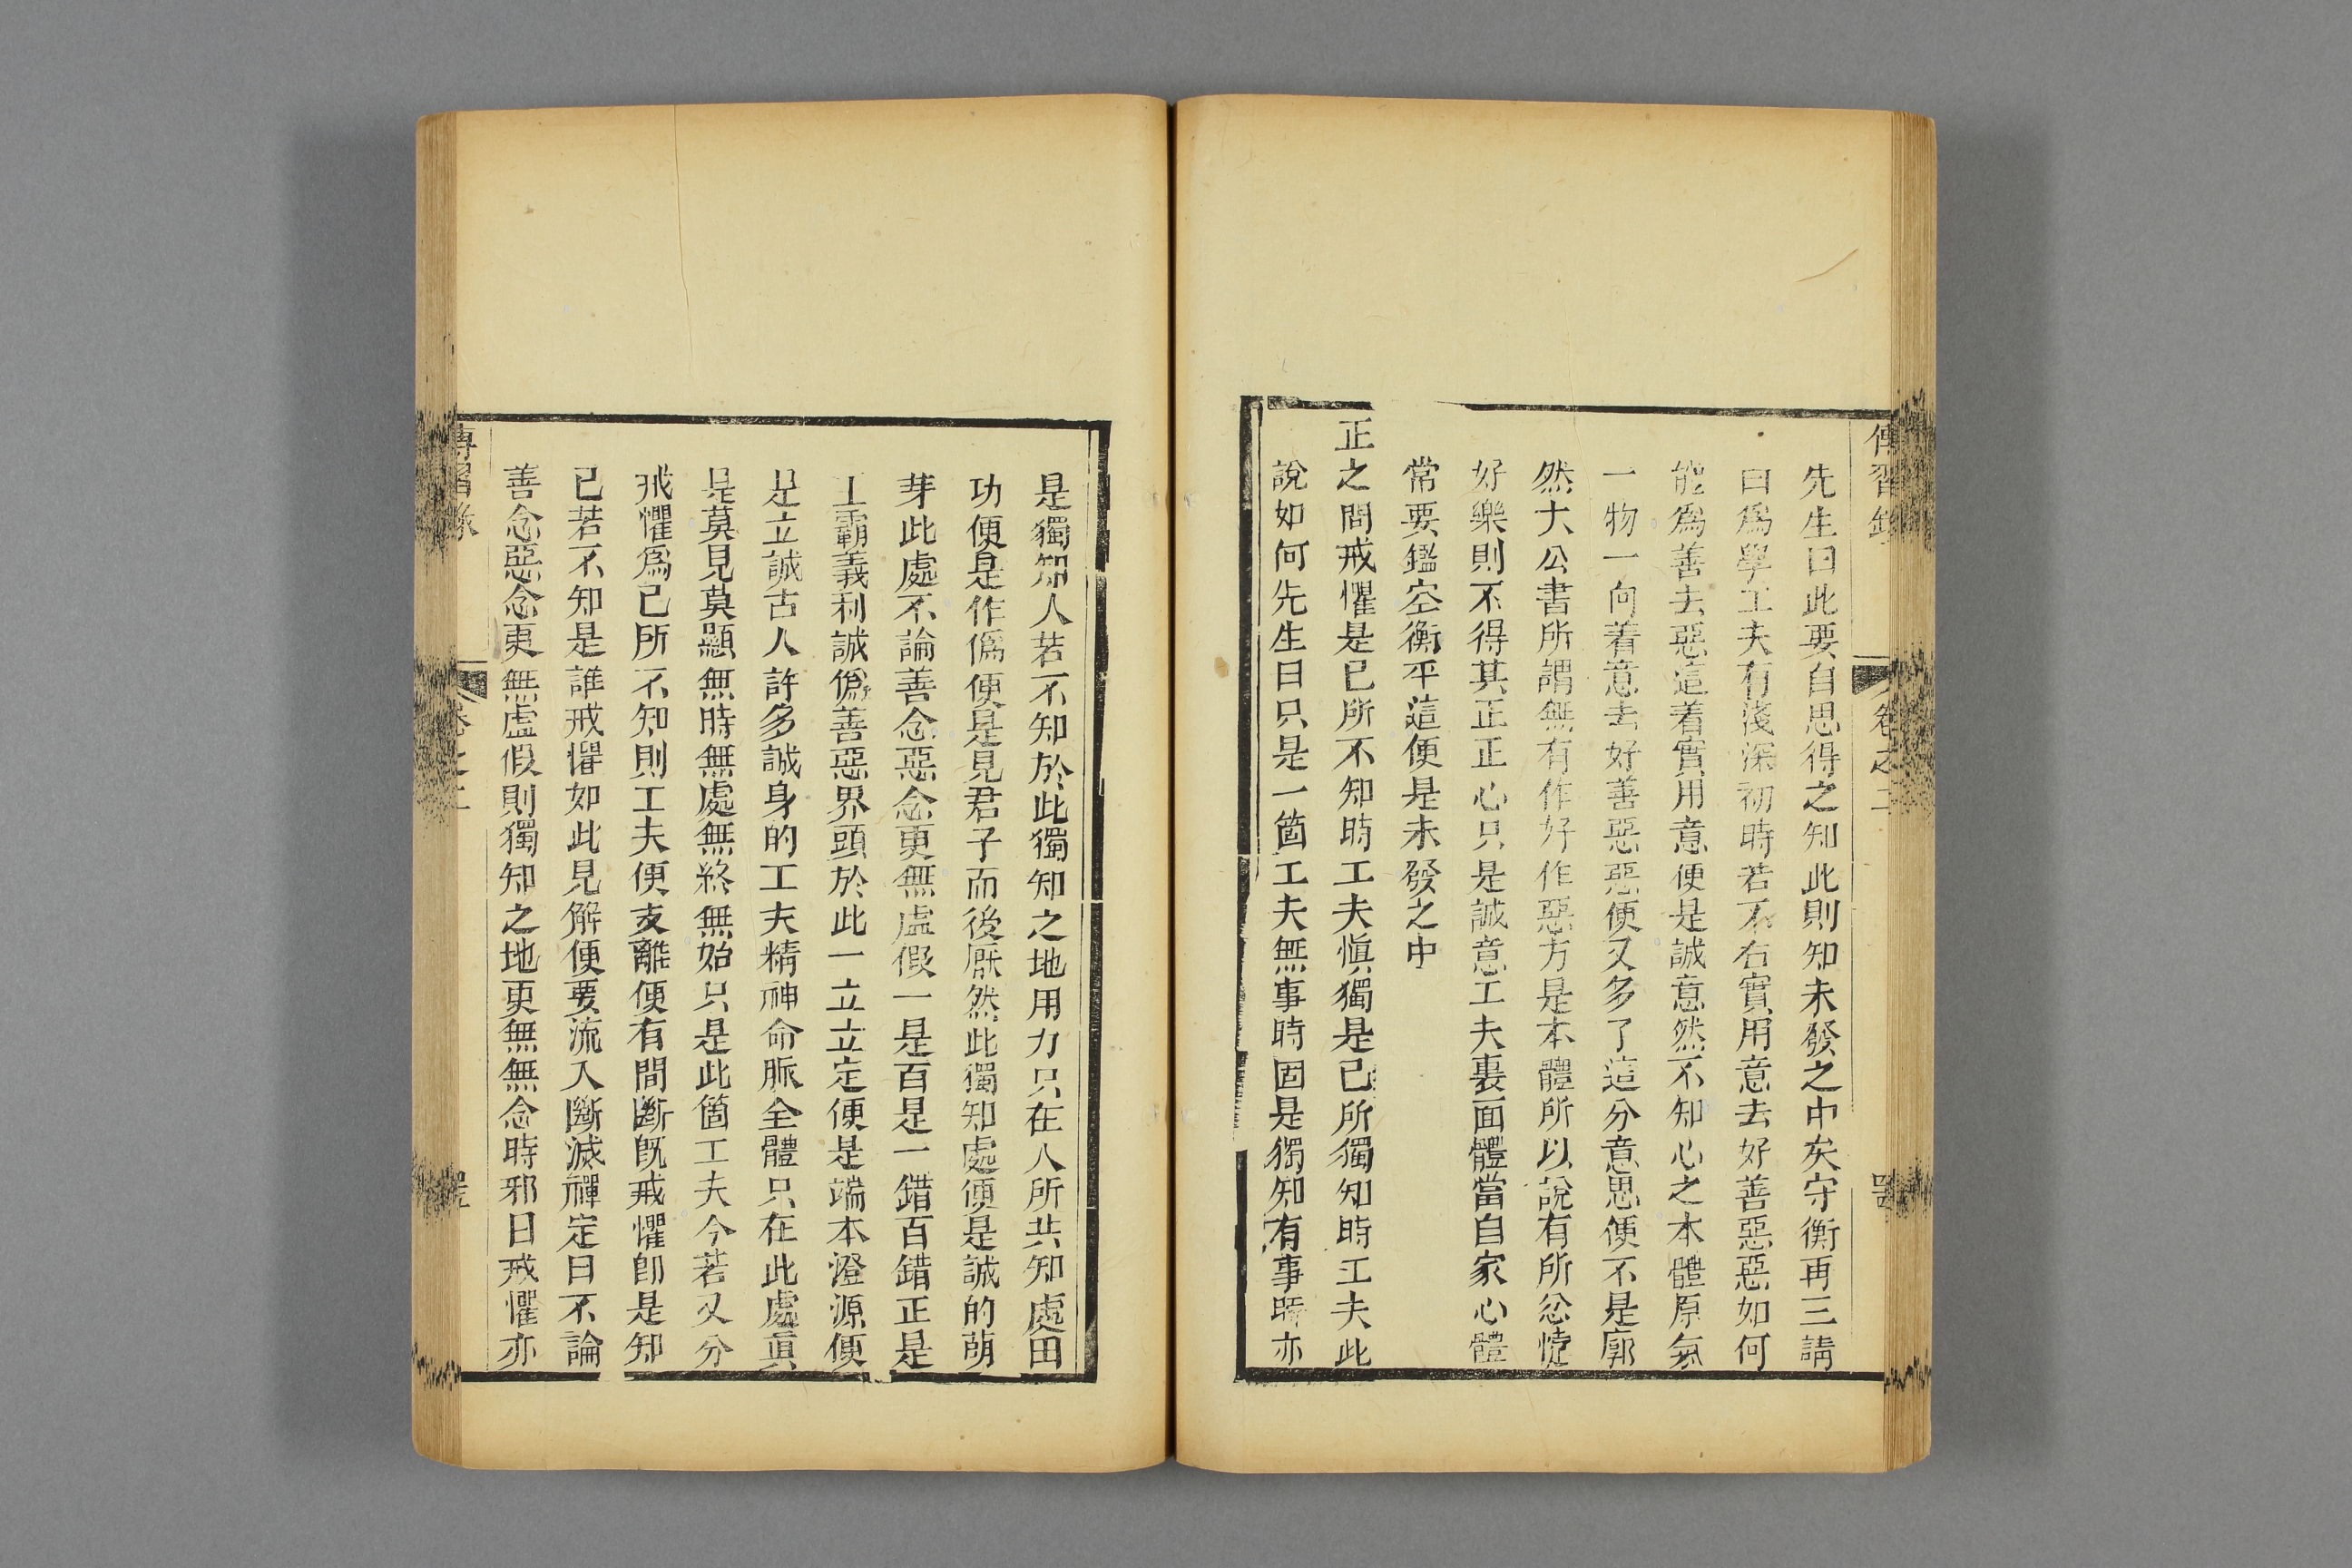 傳習錄
卷之二
先生曰此要自思得之知此則知未發之中矣守衡再三請
曰爲學工夫有淺深初時若不着實用意去好善惡惡如何
能爲善去惡這着實用意便是誠意然不知心之本體原無
一物一向着意去好善惡惡便又多了這分意思便不是廓
然大公書所謂無有作好作惡方是本體所以說有所忿懥
好樂則不得其正正心只是誠意工夫裏面體當自家心體
常要鑑空衡平這便是未發之中
正之問戒懼是已所不知時工夫愼獨是已所獨知時工夫此
說如何先生曰只是一箇工夫無事時固是獨知有事時亦
是獨知人若不知於此獨知之地用力只在人所共知處用
功便是作僞便是見君子而後厭然此獨知處便是誠的萌
芽此處不論善念惡念更無虛假一是百是一錯百錯正是
王霸義利誠僞善惡界頭於此一立立定便是端本澄源便
是立誠古人許多誠身的工夫精神命脈全體只在此處眞
是莫見莫顯無時無處無終無始只是此箇工夫今若又分
戒懼爲已所不知則工夫便支離便有間斷旣戒懼卽是知
已若不知是誰戒懼如此見解便要流入斷滅禪定曰不論
善念惡念更無虛假則獨知之地更無無念時邪曰戒懼亦
傳習錄
卷之二